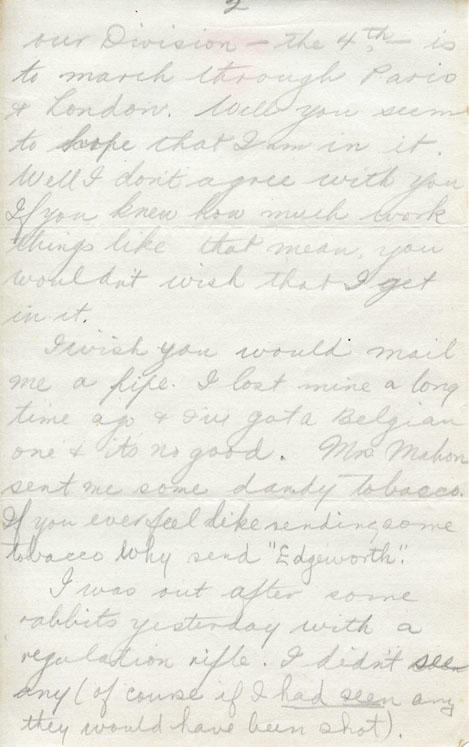 2
our Division - the 4th - is
to march through Paris
& London. Well you seem
to hope that I am in it.
Well I don't agree with you
If you knew how much work
things like that mean, you
wouldn't wish that I get
in it.
I wish you would mail
me a pipe. I lost mine a long
time ago & I've got a Belgian
one & it's no good. Mrs Mahon
sent me some dandy tobacco.
If you ever feel like sending some
tobacco why send "Edgeworth".
I was out after some
rabbits yesterday with a
regulation rifle. I didn't see
any (of course if I had seen any
they would have been shot).